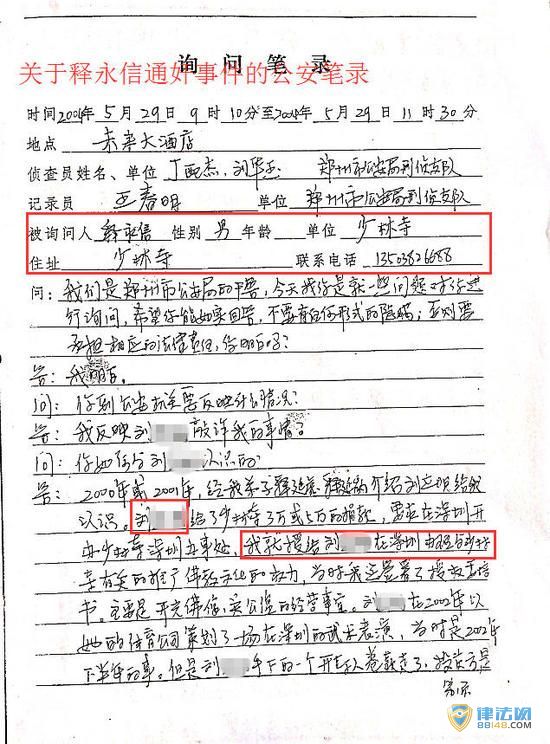 询问笔录
关于释永信通奸事件的公安笔录
时间2004年5月29日9时10分至2004年5月29日11时30分
地点 未来大酒店
侦查员姓名、单位 丁 杰、刘华 郑州市公安局刑侦支队
记录员 王春明 单位 郑州市公安局刑侦支队
被询问人 释永信 性别 男 年龄 单位 少林寺
住址 少林寺 联系电话 13503826688
问:我们是郑州市公安局的干警,今天找你是就一些问题对你进
行询问,希望你能如实回答,不要有任何形式的隐瞒;否则要
承担相应的法律责任,你明白吗?
答:我明白。
问:你到公安机关要反映什么情况?
答:我反映刘 敲诈我的事情?
问:你如何与刘 认识的?
答:2000年或2001年,经我弟子释延 介绍刘 给我
认识。刘 给了少林寺3万或5万的捐款,要求在深圳开
办少林寺深圳办事处,我就授给刘 在深圳 与少林
寺有关的推广佛教文化的权力,当时我还签署了授权委托
书。主要是开光佛像, 的经营事宜。刘 在2002年以
她的体育公司策划了一场在深圳的武术表演,当时是2002年
下半年的事。但是刘 手下的一个 卷款走了,投资方是
律法网
88148.COM